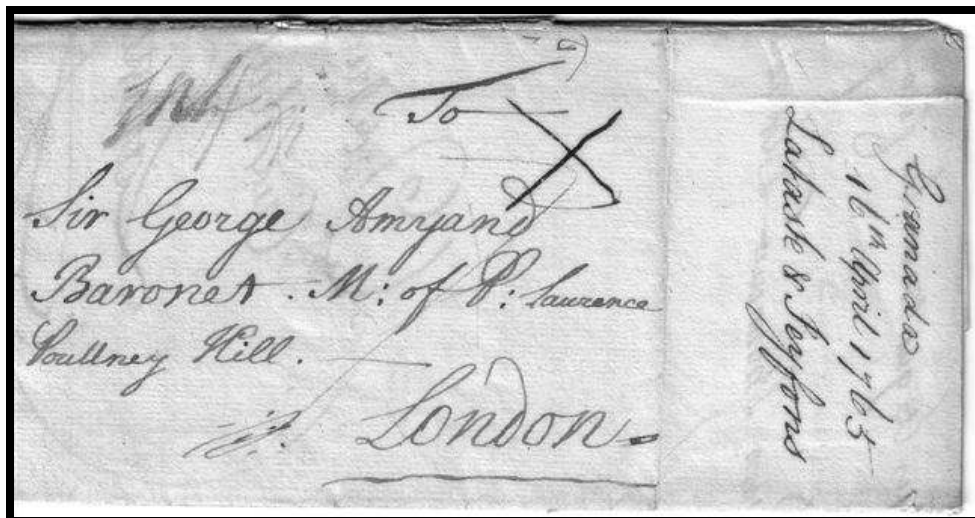 To
Sir George Amyand
Baronet. M: of P: Laurence
Poultney Hill.
London
Granada
16th April 1765